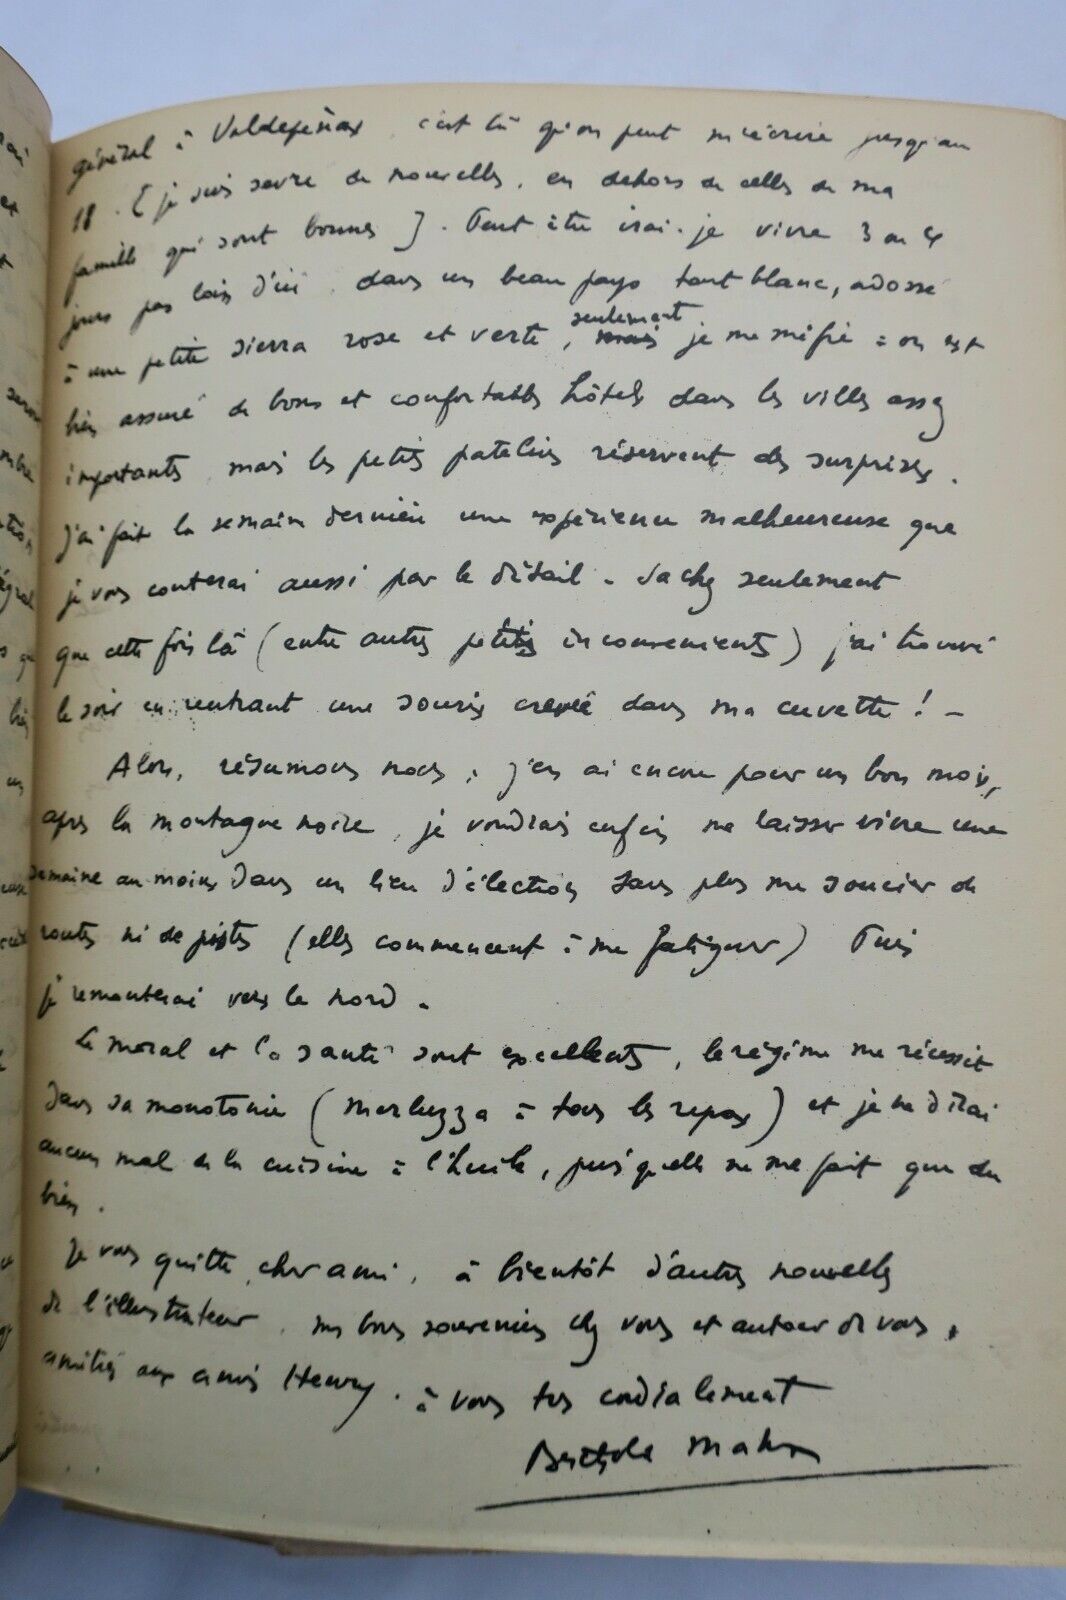 général à Valdepeñas, c'est là qu'on peut m'écrire jusqu'au
18. [je suis sevré de nouvelles, en dehors de celles de ma
famille qui sont bonnes]. Peut être irai-je vivre 3 ou 4
jours pas loin d'ici, dans un beau pays tout blanc, adossé
à une petite sierra rose et verte, seulement je me méfie : on est
bien assuré de bons et confortables hôtels dans les villes assez
importantes, mais les petits patelins réservent des surprises.
J'ai fait la semaine dernière une expérience malheureuse que
je vous conterai aussi par le détail. Sachez seulement
que cette fois là (entre autres petits inconvenients) j'ai trouvé
le soir en rentrant une souris crevée dans ma cuvette ! –
Alors, résumons nous : j'en ai encore pour un bon mois,
après la montagne noire, je voudrais enfin me laisser vivre une
semaine au moins dans un lieu d'élection sans plus me soucier de
routes ni de pistes (elles commencent à me fatiguer) Puis
je remonterai vers le nord.
Le moral et la santé sont excellents, le régime me réussit
dans sa monotonie (merluzza à tous les repas) et je ne dirai
aucun mal de la cuisine à l'huile, puisqu'elle ne me fait que du
bien.
Je vous quitte, cher ami, à bientôt d'autres nouvelles
de l'illustrateur, mes bons souvenirs chez vous et autour de vous,
amitiés aux amis Henry. à vous très cordialement
Berthold Mahn